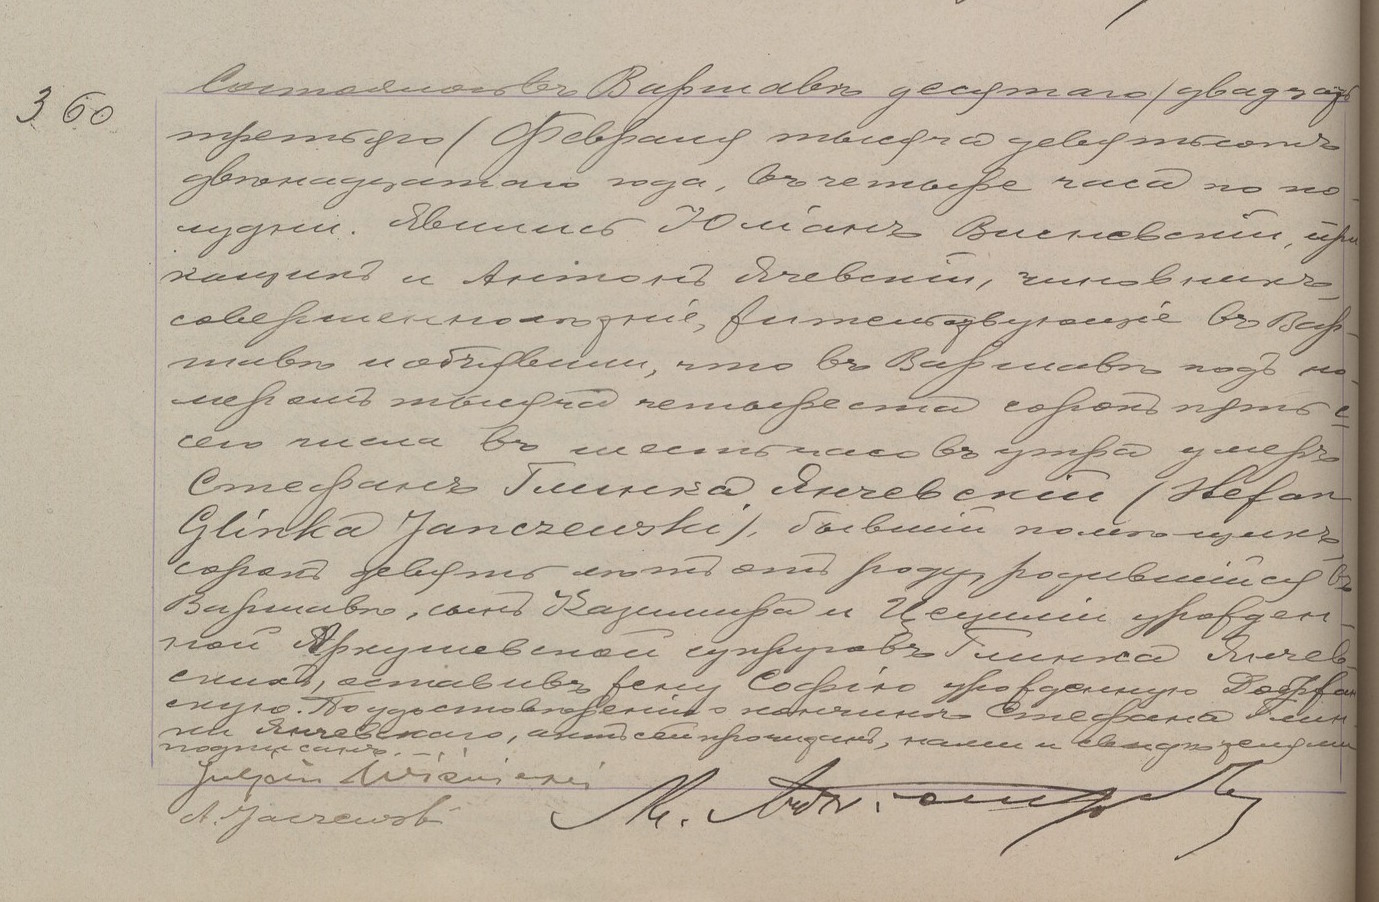 360
Состоялось въ Варшавѣ десятаго /двадцать
третьяго/ Февраля тысяча девятьсотъ
двѣнадцатаго года, въ четыре часа по по-
лудни. Явились Юліанъ Висневскій, при-
кащикъ и Антонъ Янчевскій, чиновникъ,
совершеннолѣтніе, жительствующіе въ Вар-
шавѣ и объявили, что въ Варшавѣ подъ но-
меромъ тысяча четыреста сорокъ пять с
сего числа въ шесть часовъ утра умеръ
Стефанъ Глинка Янчевскій (Stefan
Glinka Janczewski), бывшій помѣщикъ,
сорокъ девять лѣтъ отъ роду, родившійся въ
Варшавѣ, сынъ Казимира и Цецилии урожден-
ной Яркушевской супруговъ Глинка Янчев-
скихъ, оставивъ жену Софію урожденную
скую. По удостовѣреніи о кончинѣ Стефана Глин-
ки Янчевскаго, актъ сей прочитанъ, нами и свидѣтелями
подписанъ.
Juljan Wiśniewski
A. Janczewski